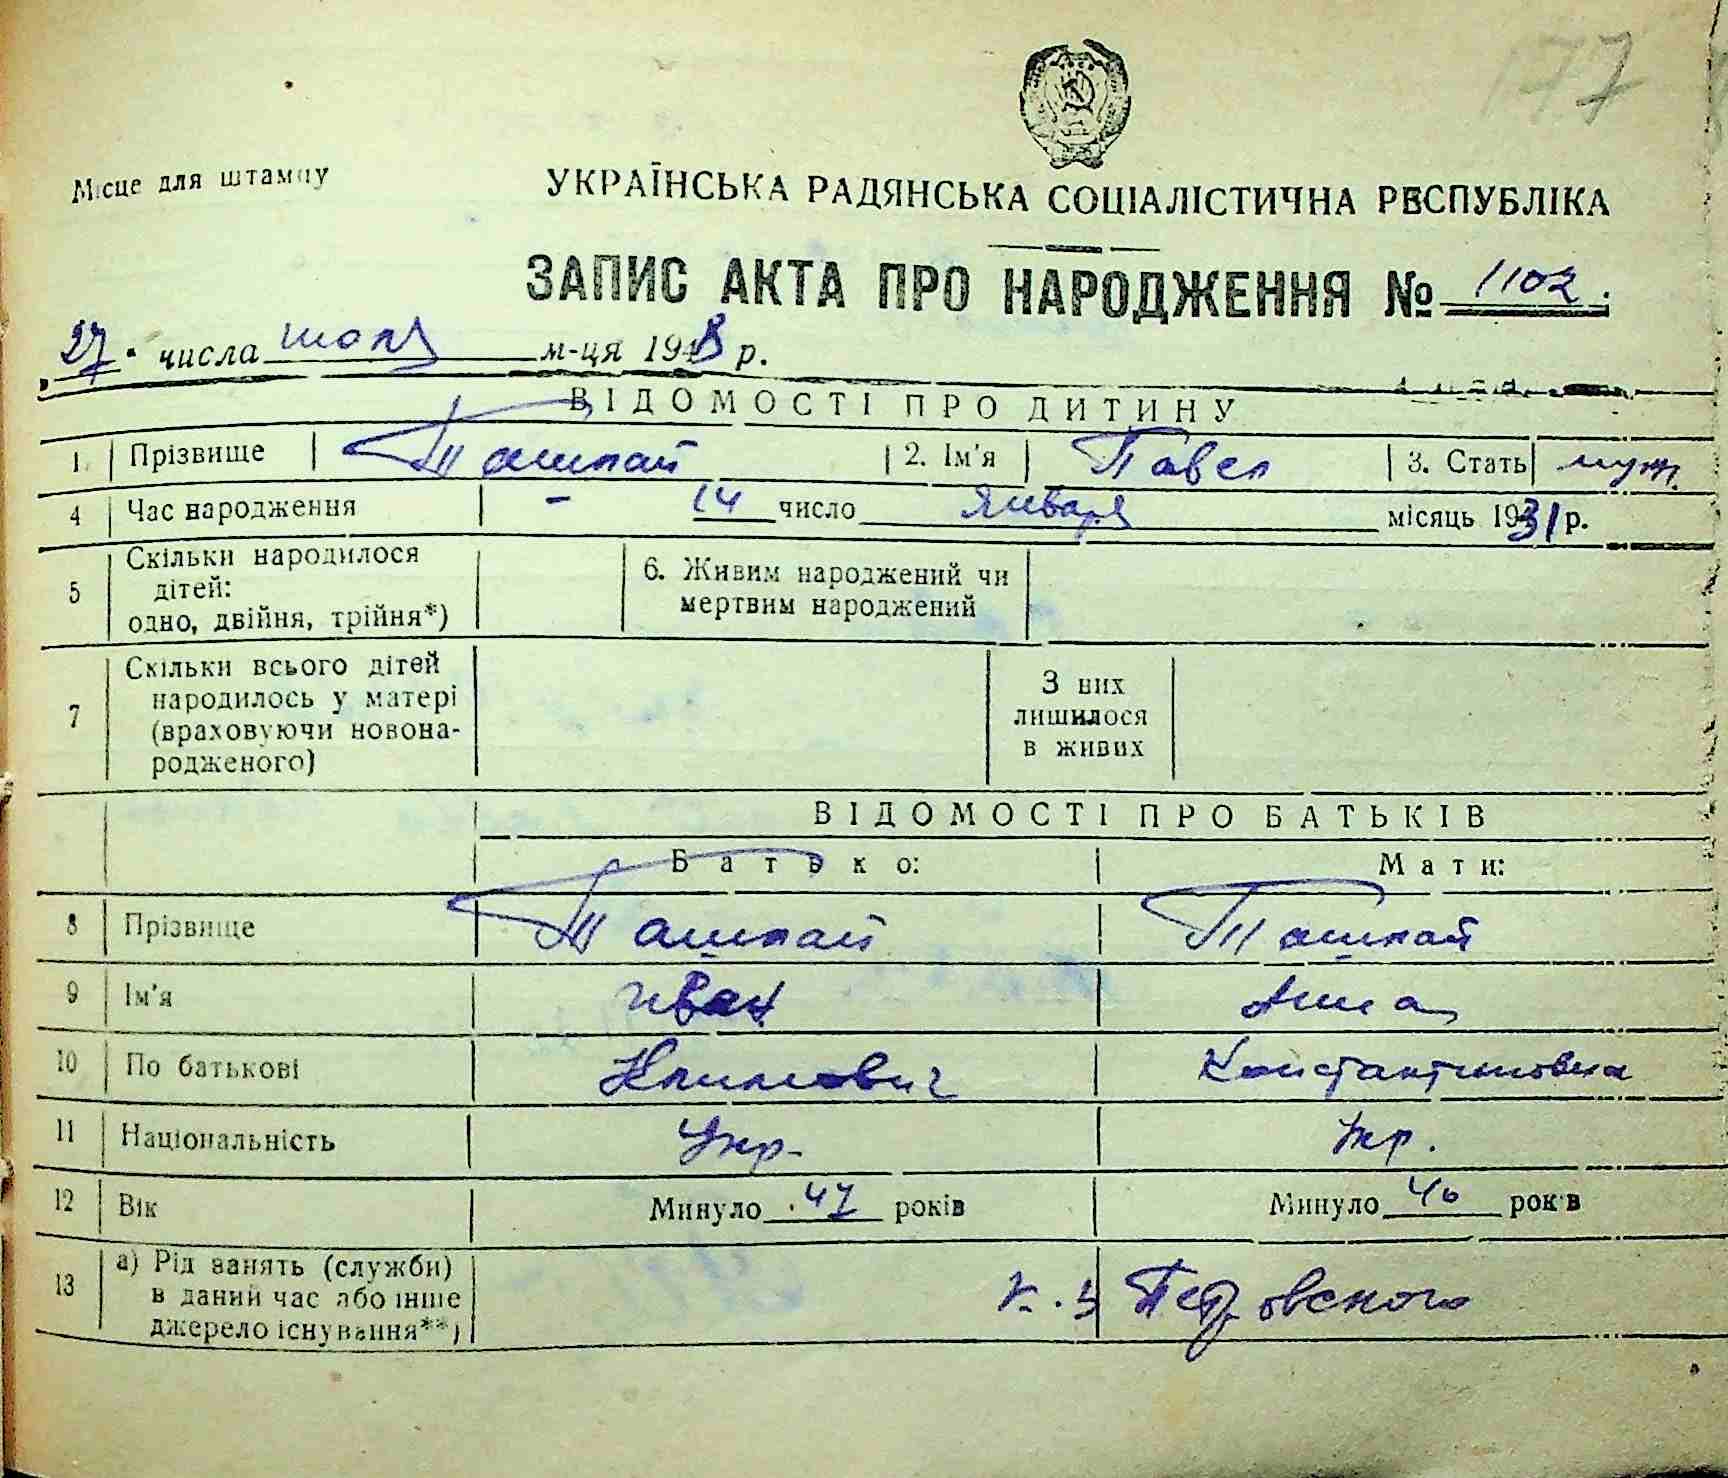 177
Місце для штампу
УКРАЇНСЬКА РАДЯНСЬКА СОЦІАЛІСТИЧНА РЕСПУБЛІКА
ЗАПИС АКТА ПРО НАРОДЖЕННЯ № 1102
27 числа июля м-ця 1948 р.
ВІДОМОСТІ ПРО ДИТИНУ
1. Прізвище Ташлай 2. Ім'я Павел 3. Стать муж.
4 Час народження - 14 число Января місяць 1931 р.
5 Скільки народилося
дітей:
одно, двійня, трійня*)
6. Живим народжений чи
мертвим народжений
7 Скільки всього дітей
народилось у матері
(враховуючи новона-
родженого)
З них
лишилося
в живих
ВІДОМОСТІ ПРО БАТЬКІВ
Батько: Мати:
8 Прізвище Ташлай Ташлай
9 Ім'я Иван Анна
10 По батькові Климович Константиновна
11 Національність Укр. Укр.
12 Вік Минуло 47 років Минуло 40 років
13 а) Рід занять (служби)
в даний час або інше
джерело існування**)
Петровского